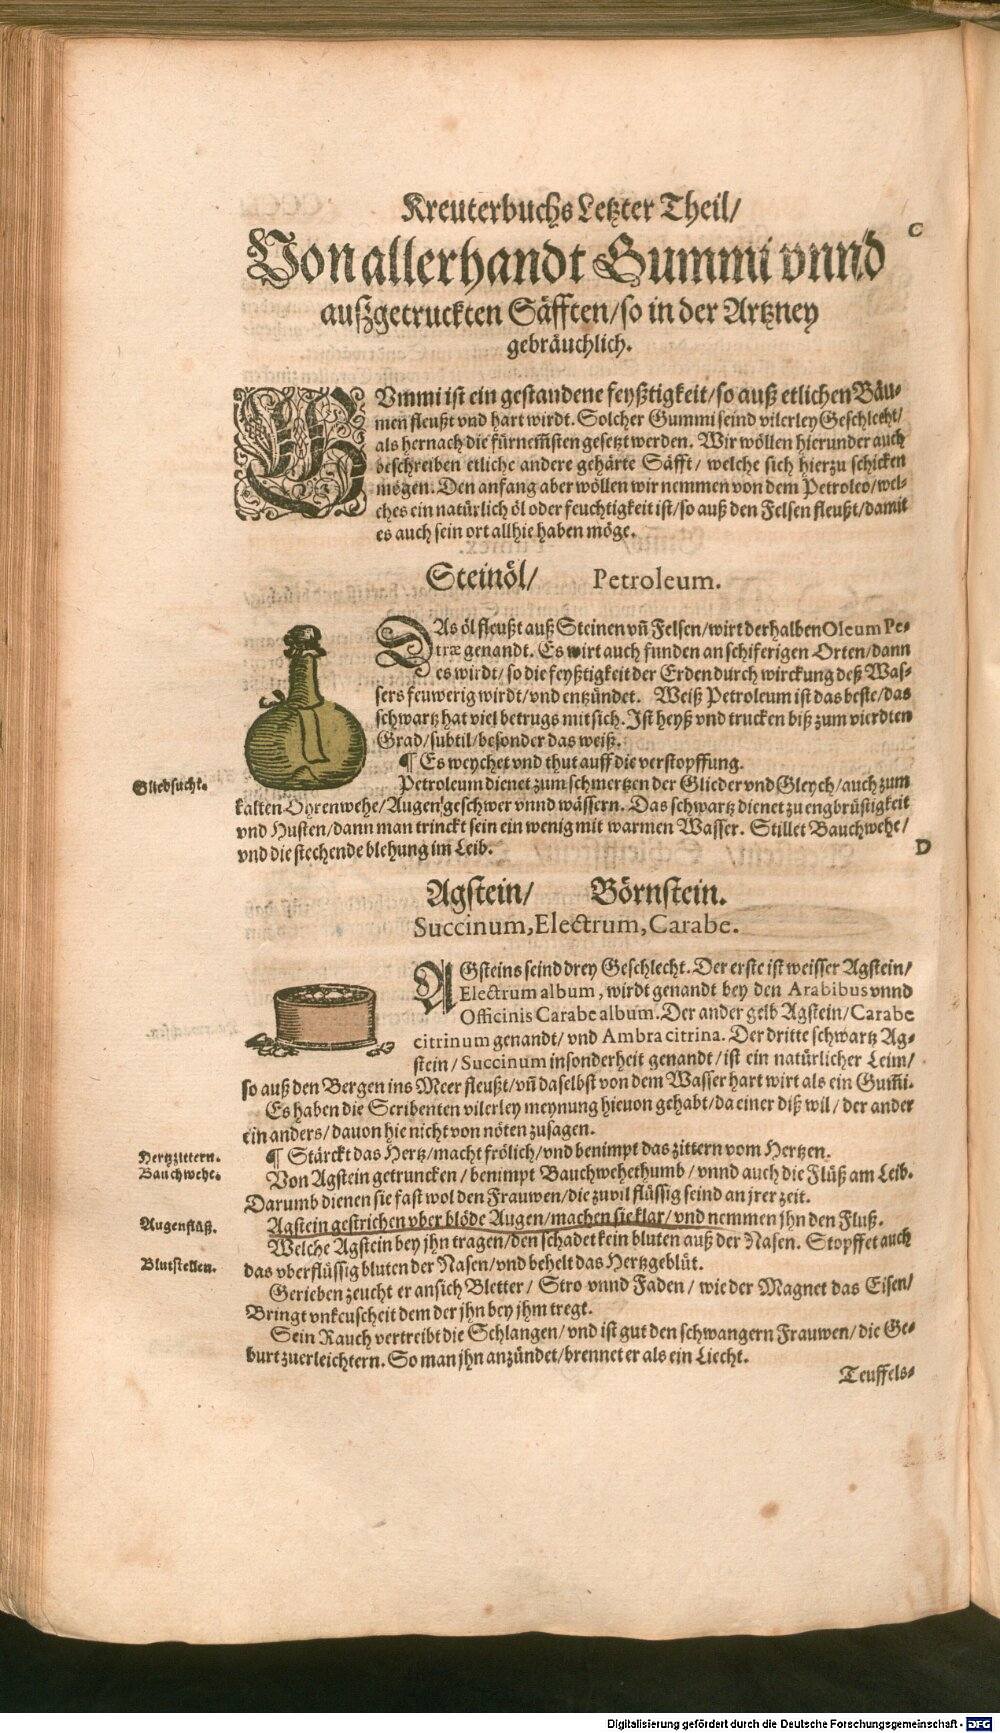 Kreuterbuchs Letzter Theil/
Von allerhandt Gummi vnnd
C
außgetruckten Säfften/ so in der Artzney
gebräuchlich.
GUmmi ist ein gestandene feyßtigkeit/ so auß etlichen Bäu-
men fleußt vnd hart wirdt. Solcher Gummi seind vilerley Geschlecht/
als hernach die fürnemsten gesetzt werden. Wir wöllen hierunder auch
beschreiben etliche andere gehärte Säfft/ welche sich hierzu schicken
mögen. Den anfang aber wöllen wir nemmen von dem Petroleo/ wel-
ches ein natürlich öl oder feuchtigkeit ist/ so auß den Felsen fleußt/ damit
es auch sein ort allhie haben möge.
Steinöl/ Petroleum.
DAs öl fleußt auß Steinen vñ Felsen/ wirt derhalben Oleum Pe-
træ genandt. Es wirt auch funden an schiferigen Orten/ dann
es wirdt/ so die feyßtigkeit der Erden durch wirckung deß Was-
sers feuwerig wirdt/ vnd entzündet. Weiß Petroleum ist das beste/ das
schwartz hat viel betrugs mit sich. Ist heyß vnd trucken biß zum vierdten
Grad/ subtil/ besonder das weiß.
¶ Es weychet vnd thut auff die verstopffung.
Gliedsucht.
Petroleum dienet zum schmertzen der Glieder vnd Gleych/ auch zum
kalten Ohrenwehe/ Augen geschwer vnnd wässern. Das schwartz dienet zu engbrüstigkeit
vnd Husten/ dann man trinckt sein ein wenig mit warmen Wasser. Stillet Bauchwehe/
D
vnd die stechende blehung im Leib.
Agstein/ Börnstein.
Succinum, Electrum, Carabe.
AGsteins seind drey Geschlecht. Der erste ist weisser Agstein/
Electrum album, wirdt genandt bey den Arabibus vnnd
Officinis Carabe album. Der ander gelb Agstein/ Carabe
citrinum genandt/ vnd Ambra citrina. Der dritte schwartz Ag-
stein/ Succinum insonderheit genandt/ ist ein natürlicher Leim/
so auß den Bergen ins Meer fleußt/ vñ daselbst von dem Wasser hart wirt als ein Gum̃i.
Es haben die Scribenten vilerley meynung hieuon gehabt/ da einer diß wil/ der ander
ein anders/ dauon hie nicht von nöten zusagen.
Hertzzittern.
¶ Stärckt das Hertz/ macht frölich/ vnd benimpt das zittern vom Hertzen.
Bauchwehe.
Von Agstein getruncken/ benimpt Bauchwehethumb/ vnnd auch die Flüß am Leib.
Darumb dienen sie fast wol den Frauwen/ die zuvil flüssig seind an jrer zeit.
Augenflüß.
Agstein gestrichen vber blöde Augen/ machen sie klar/ vnd nemmen jhn den Fluß.
Welche Agstein bey jhn tragen/ den schadet kein bluten auß der Nasen. Stopffet auch
Blutstellen.
das vberflüssig bluten der Nasen/ vnd behelt das Hertzgeblüt.
Gerieben zeucht er an sich Bletter/ Stro vnnd Faden/ wie der Magnet das Eisen/
Bringt vnkeuscheit dem der jhn bey jhm tregt.
Sein Rauch vertreibt die Schlangen/ vnd ist gut den schwangern Frauwen/ die Ge-
burt zuerleichtern. So man jhn anzündet/ brennet er als ein Liecht.
Teuffels-
Digitalisierung gefördert durch die Deutsche Forschungsgemeinschaft - DFG